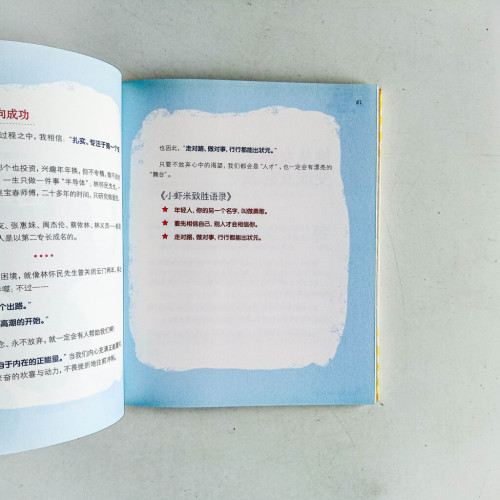 向成功
过程之中，我相信：“扎实、专注于第一个专
也投资，兴趣年年换，但不专精，做不
一生只做一件事“半导体”；林怀民先生，
宝春师傅，二十多年的时间，只研究做面包
友、张惠妹、周杰伦、蔡依林、林义杰
人是以第二专长成名的。
困境，就像林怀民先生曾关闭云门两年，
不过——
个出路。”
高潮的开始。”
念、永不放弃，就一定会有人帮助我们啊！
自于内在的正能量。”当我们内心充满正能量
奋的欢喜与动力，不畏挫折地往前冲刺。
61
也因此，“走对路、做对事，行行都能出状元。”
只要不放弃心中的渴望，我们都会是“人才”，也一定会有漂亮的
“舞台”。
《小虾米致胜语录》
★ 年轻人，你的另一个名字，叫做勇敢。
★ 要先相信自己，别人才会相信你。
★ 走对路、做对事，行行都能出状元。